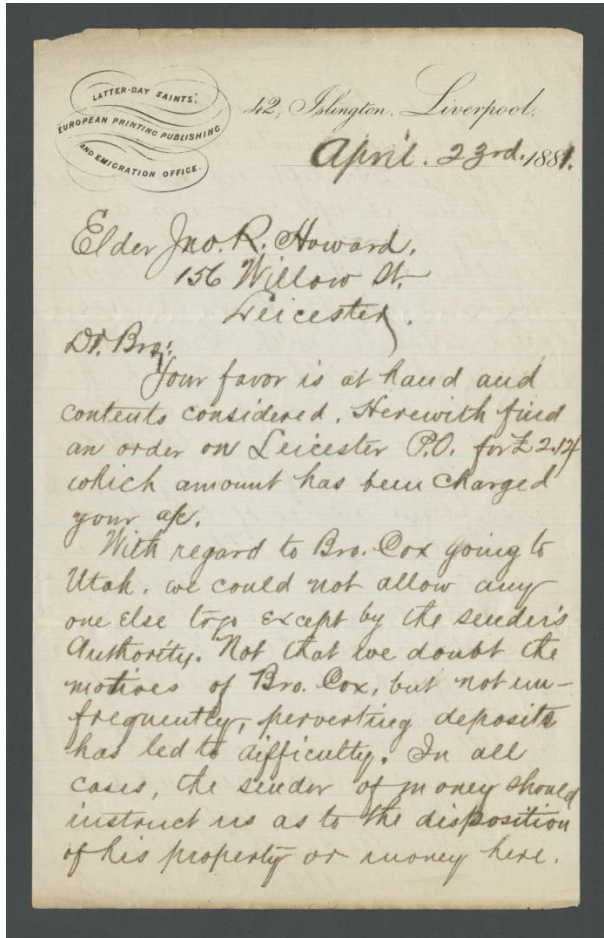 LATTER-DAY SAINTS'
EUROPEAN PRINTING PUBLISHING
AND EMIGRATION OFFICE.
42, Islington, Liverpool,
April. 23rd. 1881.
Elder Jno. R. Howard.
156 Willow St.
Leicester.
Dr. Bro:
Your favor is at hand and
contents considered. Herewith find
an order on Leicester P.O. for £2.12/
which amount has been charged
your a/c.
With regard to Bro. Cox going to
Utah. we could not allow any
one else to go except by the sender's
Authority. Not that we doubt the
motives of Bro. Cox, but not un-
frequently, perverting deposits
has led to difficulty. In all
cases, the sender of money should
instruct us as to the disposition
of his property or money here.